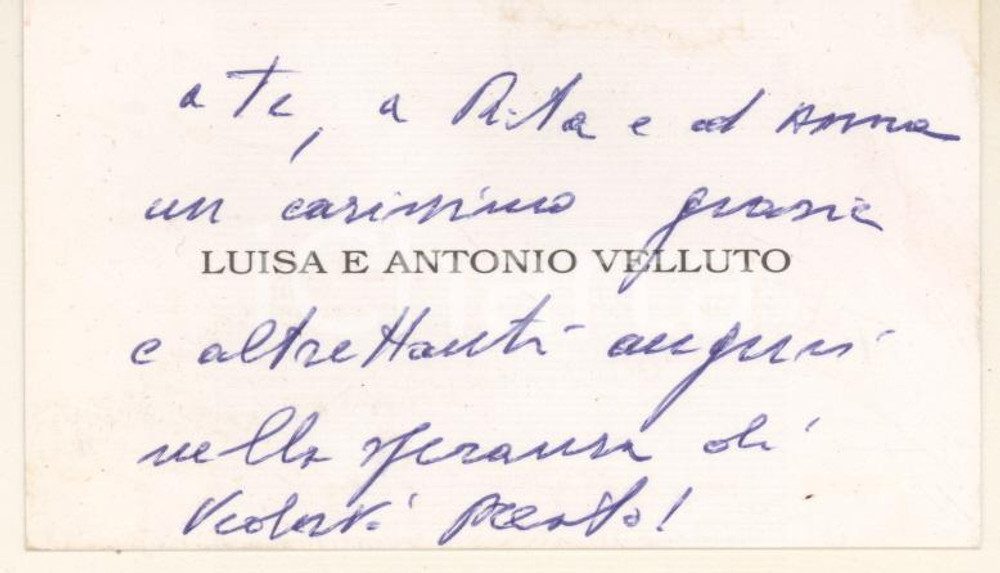 a te, a Rita e ad Anna
un carissimo grazie
LUISA E ANTONIO VELLUTO
e altrettanti auguri
nella speranza di
vederti presto!